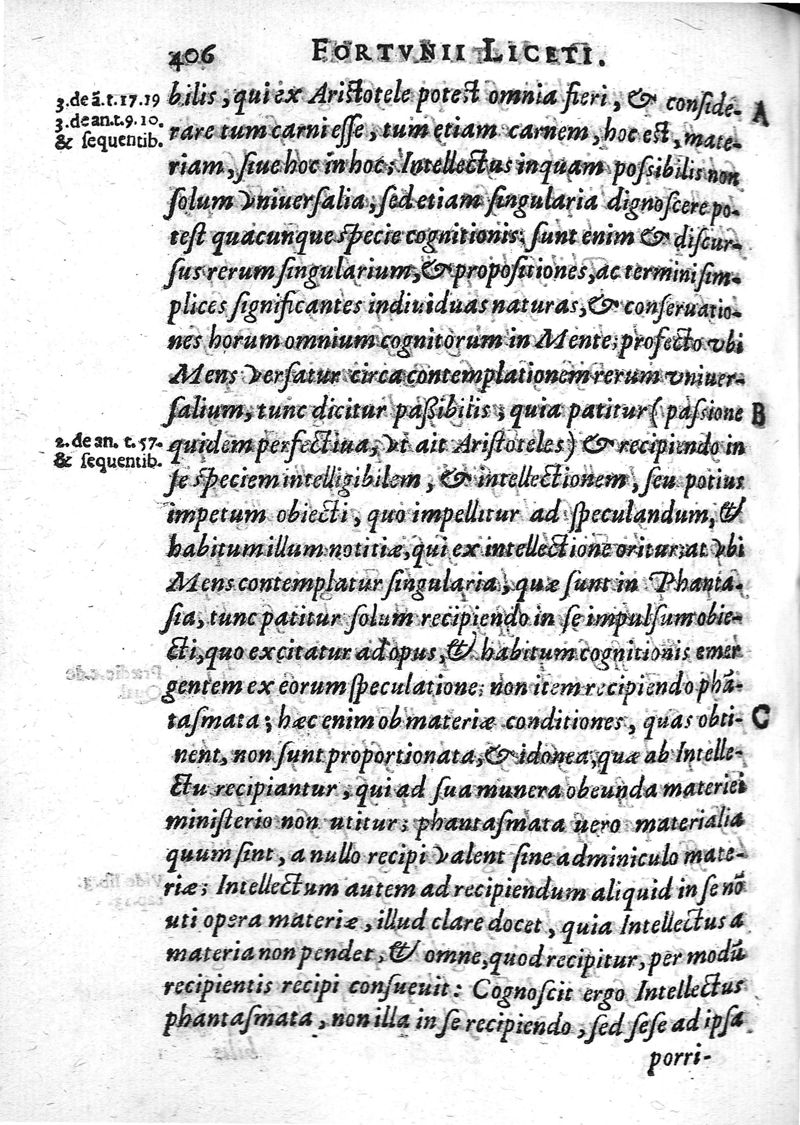 406 FORTVNII LICETI.
3. de ā. t. 17. 19
3. de an. t. 9. 10.
& sequentib.
bilis, qui ex Aristotele potest omnia fieri, & conside- A
rare tum carni esse, tum etiam carnem, hoc est, mate-
riam, siue hoc in hoc; Intellectus inquam possibilis non
solum vniuersalia, sed etiam singularia dignoscere po-
test quacunque specie cognitionis; sunt enim & discur-
sus rerum singularium, & propositiones, ac termini sim-
plices significantes indiuiduas naturas, & conseruatio-
nes horum omnium cognitorum in Mente; profecto vbi
Mens versatur circa contemplationem rerum vniuer-
salium, tunc dicitur passibilis, quia patitur (passione B
2. de an. t. 57.
& sequentib.
quidem perfectiua, vt ait Aristoteles) & recipiendo in
se speciem intelligibilem, & intellectionem, seu potius
impetum obiecti, quo impellitur ad speculandum, &
habitum illum notitiæ, qui ex intellectione oritur; at vbi
Mens contemplatur singularia, quæ sunt in Phanta-
sia, tunc patitur solum recipiendo in se impulsum obie-
cti, quo excitatur ad opus, & habitum cognitionis emer
gentem ex eorum speculatione; non item recipiendo phā-
tasmata; hæc enim ob materiæ conditiones, quas obti- C
nent, non sunt proportionata, & idonea, quæ ab Intelle-
ctu recipiantur, qui ad sua munera obeunda materiei
ministerio non utitur; phantasmata uero materialia
quum sint, a nullo recipi valent sine adminiculo mate-
riæ; Intellectum autem ad recipiendum aliquid in se nō
uti opera materiæ, illud clare docet, quia Intellectus a
materia non pendet, & omne, quod recipitur, per modū
recipientis recipi consueuit: Cognoscit ergo Intellectus
phantasmata, non illa in se recipiendo, sed sese ad ipsa
porri-